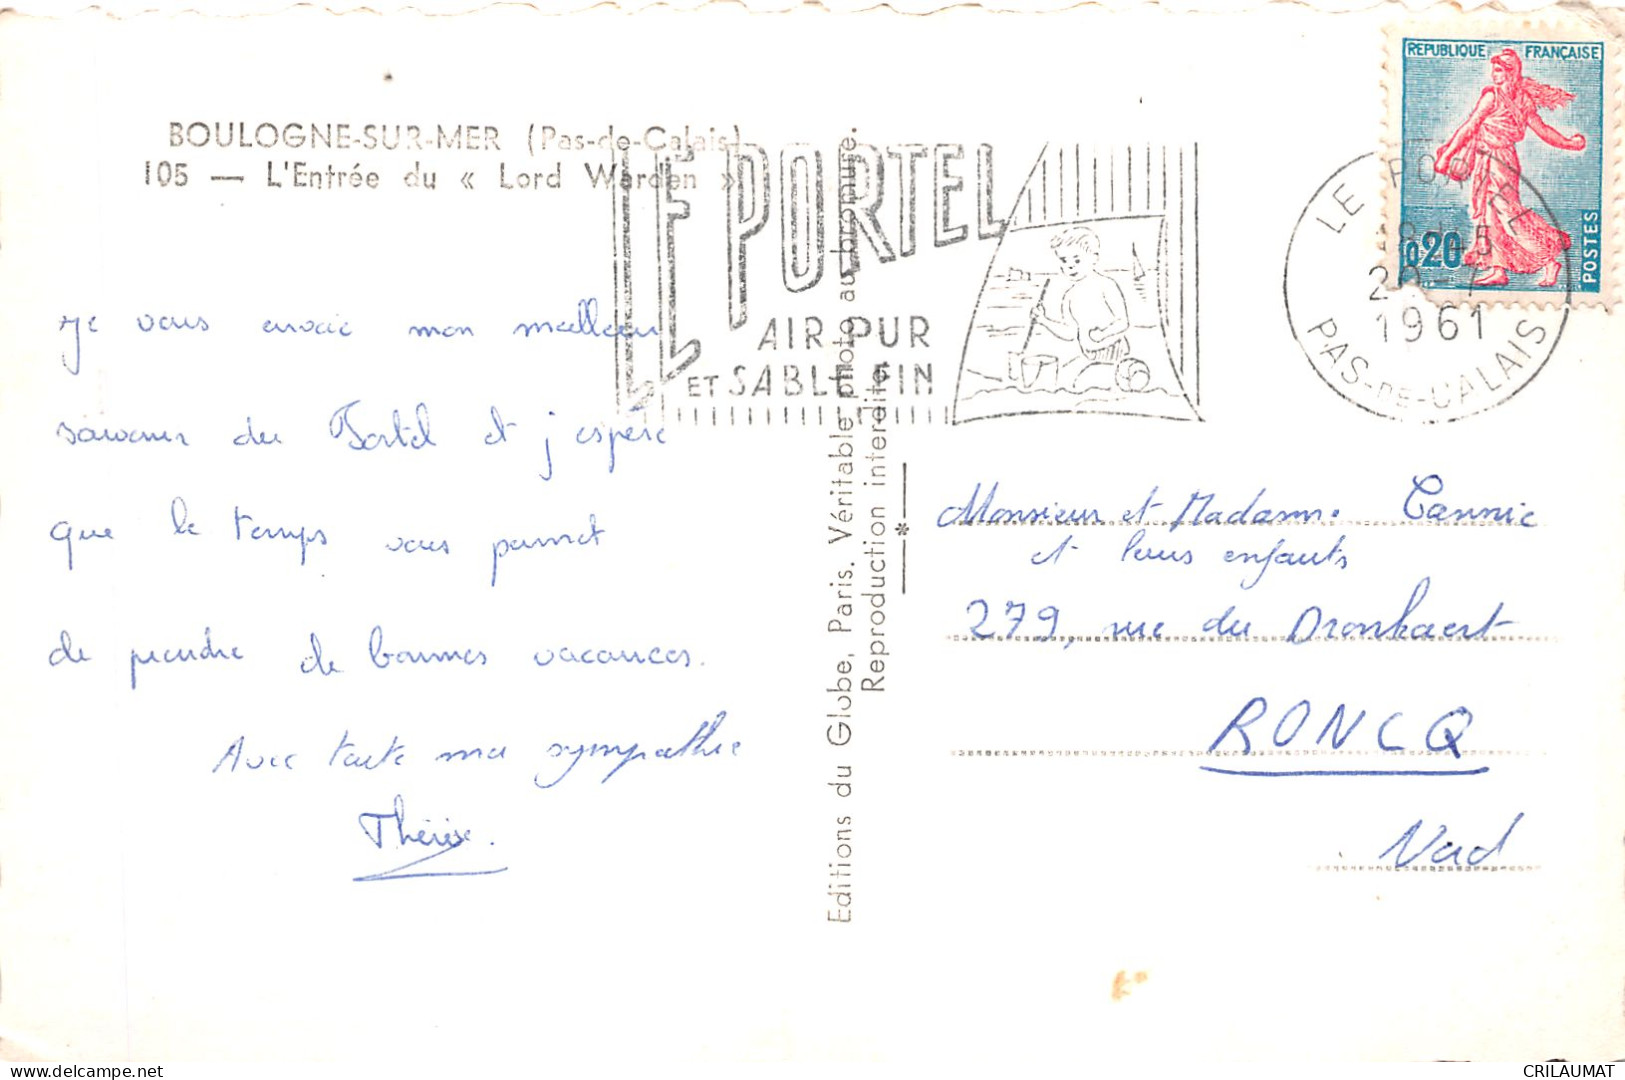 BOULOGNE-SUR-MER (Pas-de-Calais)
105 — L'Entrée du « Lord Warden »
LE PORTEL
AIR PUR
ET SABLE FIN
REPUBLIQUE FRANÇAISE
0,20
POSTES
LE PORTEL
18 -5
1961
PAS-DE-CALAIS
Je vous envoie mon meilleur
souvenir du Portel et j'espère
que le temps vous permet
de prendre de bonnes vacances.
Avec toute ma sympathie
Thérèse.
Editions du Globe, Paris. Véritable photo au bromure.
Reproduction interdite
Monsieur et Madame Cannie
et leurs enfants
279, rue du Dronkaert
RONCQ
Nord
delcampe.net
CRILAUMAT